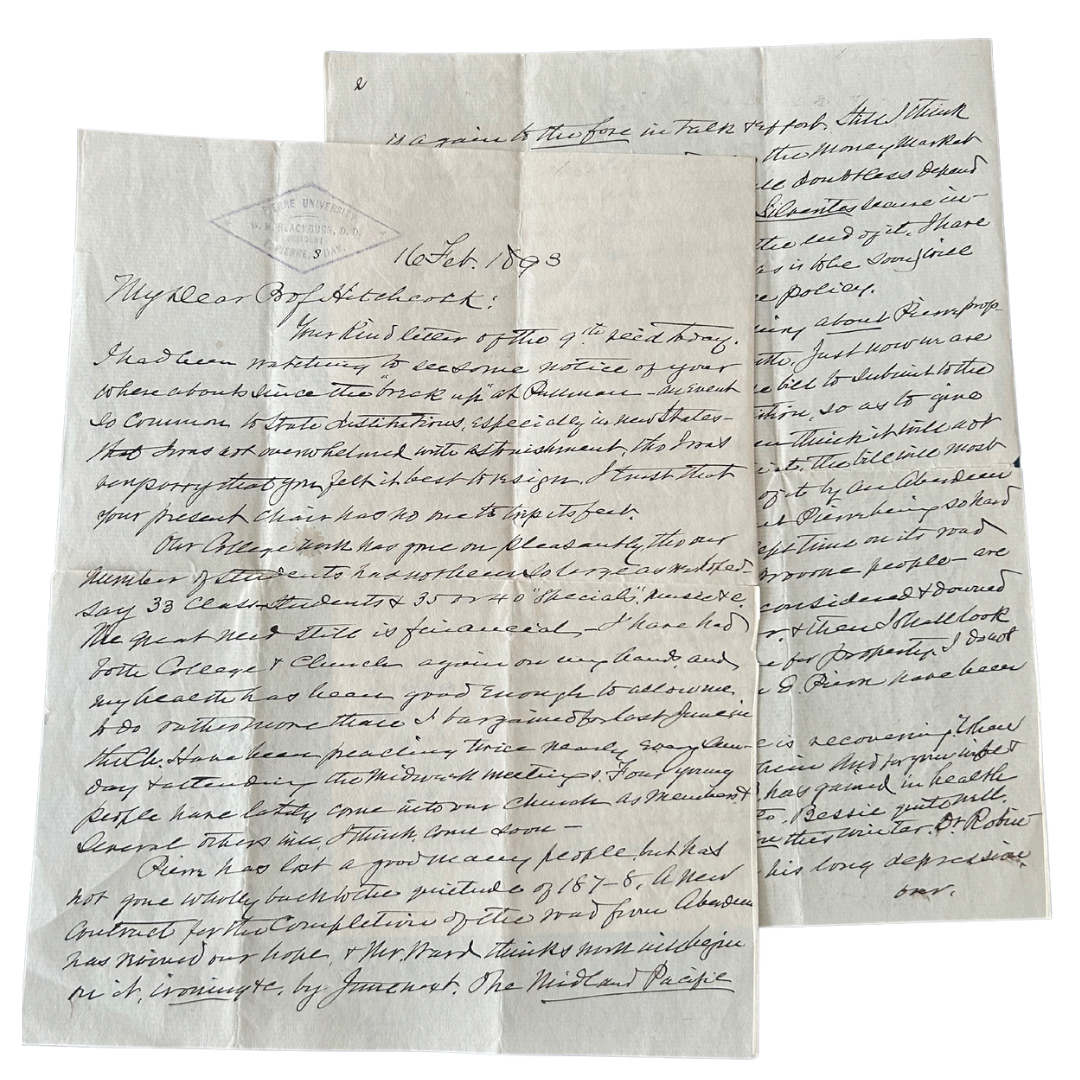 PIERRE UNIVERSITY
D. W. BLACKBURN, D. D.
PRESIDENT
E. PIERRE, S. DAK.
16 Feb. 1893
My Dear Prof. Hitchcock:
Your kind letter of the 9th rec'd today.
I had been watching to see some notice of your
whereabouts since the "break up" at Pullman – an event
so common to State institutions, especially in new States –
that I was not overwhelmed with astonishment, tho I was
very sorry that you felt it best to resign. I trust that
your present chair has no one to trip its feet.
Our College work has gone on pleasantly tho our
number of students has not been so large as we hoped
say 33 class-students & 35 or 40 "specials", music &c.
The great need still is financial – I have had
both College & Church again on my hands and
my health has been good enough to allow me
to do rather more than I bargained for last June in
the Ch. Have been preaching twice nearly every Sun-
day & attending the Midweek meetings. Four young
people have lately come into our Church as members &
several others will, I think, come soon –
Pierre has lost a good many people but has
not gone wholly back to the quietude of 187-8. A new
contract for the Completion of the road from Aberdeen
has revived our hope, & Mr. Ward thinks work will begin
on it, ironing &c. by June next. The Midland Pacific
2
is again to the fore in talk & effort. Still I think
the Money Market
doubtless depend
Silverites secure in-
the end of it. I have
as is to be soon) will
policy.
about Pierre prop-
Just now we are
bill to submit to the
so as to give
think it will not
it. The bill will most
of it by an Aberdeen
Pierre being so hard
time on its road
people – are
considered & downed
& then I shall look
for property. I do not
E. Pierre have been
is recovering. I have
him and for your wife &
has gained in health
Bessie quite well.
this winter. Dr. Robin
his long depression.
over.